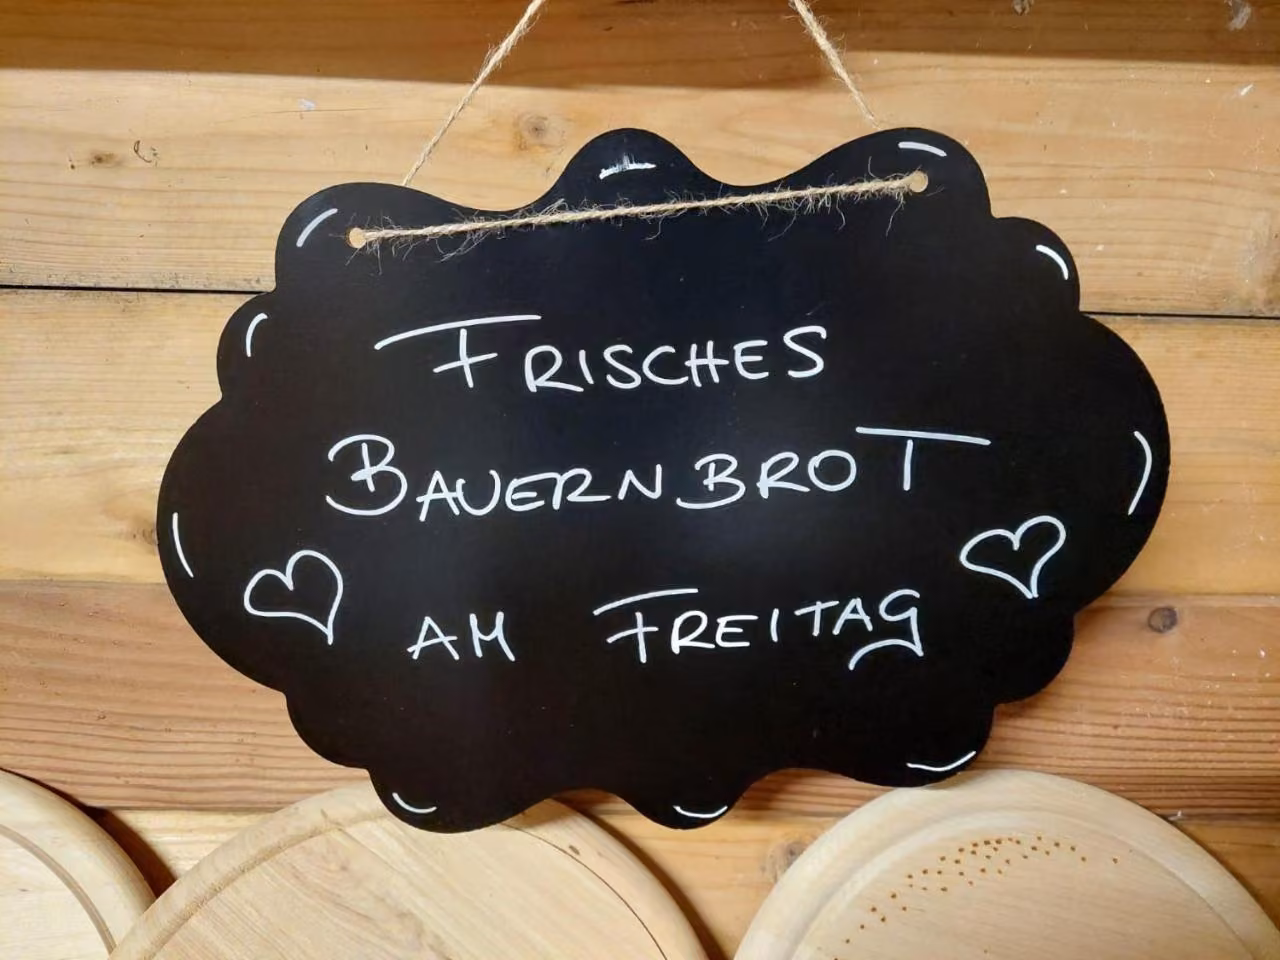 FRISCHES
BAUERNBROT
AM FREITAG